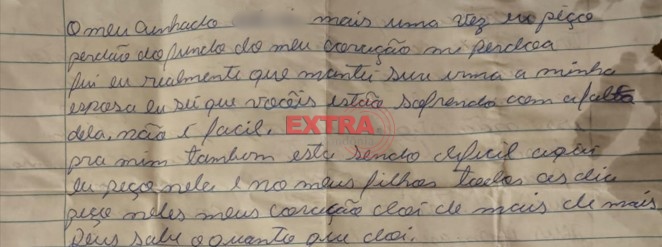 O meu Cunhado mais uma vez eu peço
perdão do fundo do meu coração mi perdoa
fui eu realmente que mantei sua irma a minha
esposa eu sei que vocêis estão sofrendo com a falta
dela, não é facil.
EXTRA
pra mim tambem esta sendo dificil aqui
eu peço nela e no meus filhos todos as dia
peço neles meus coração doi de mais de mais.
Deus sabe o quanto que doi.